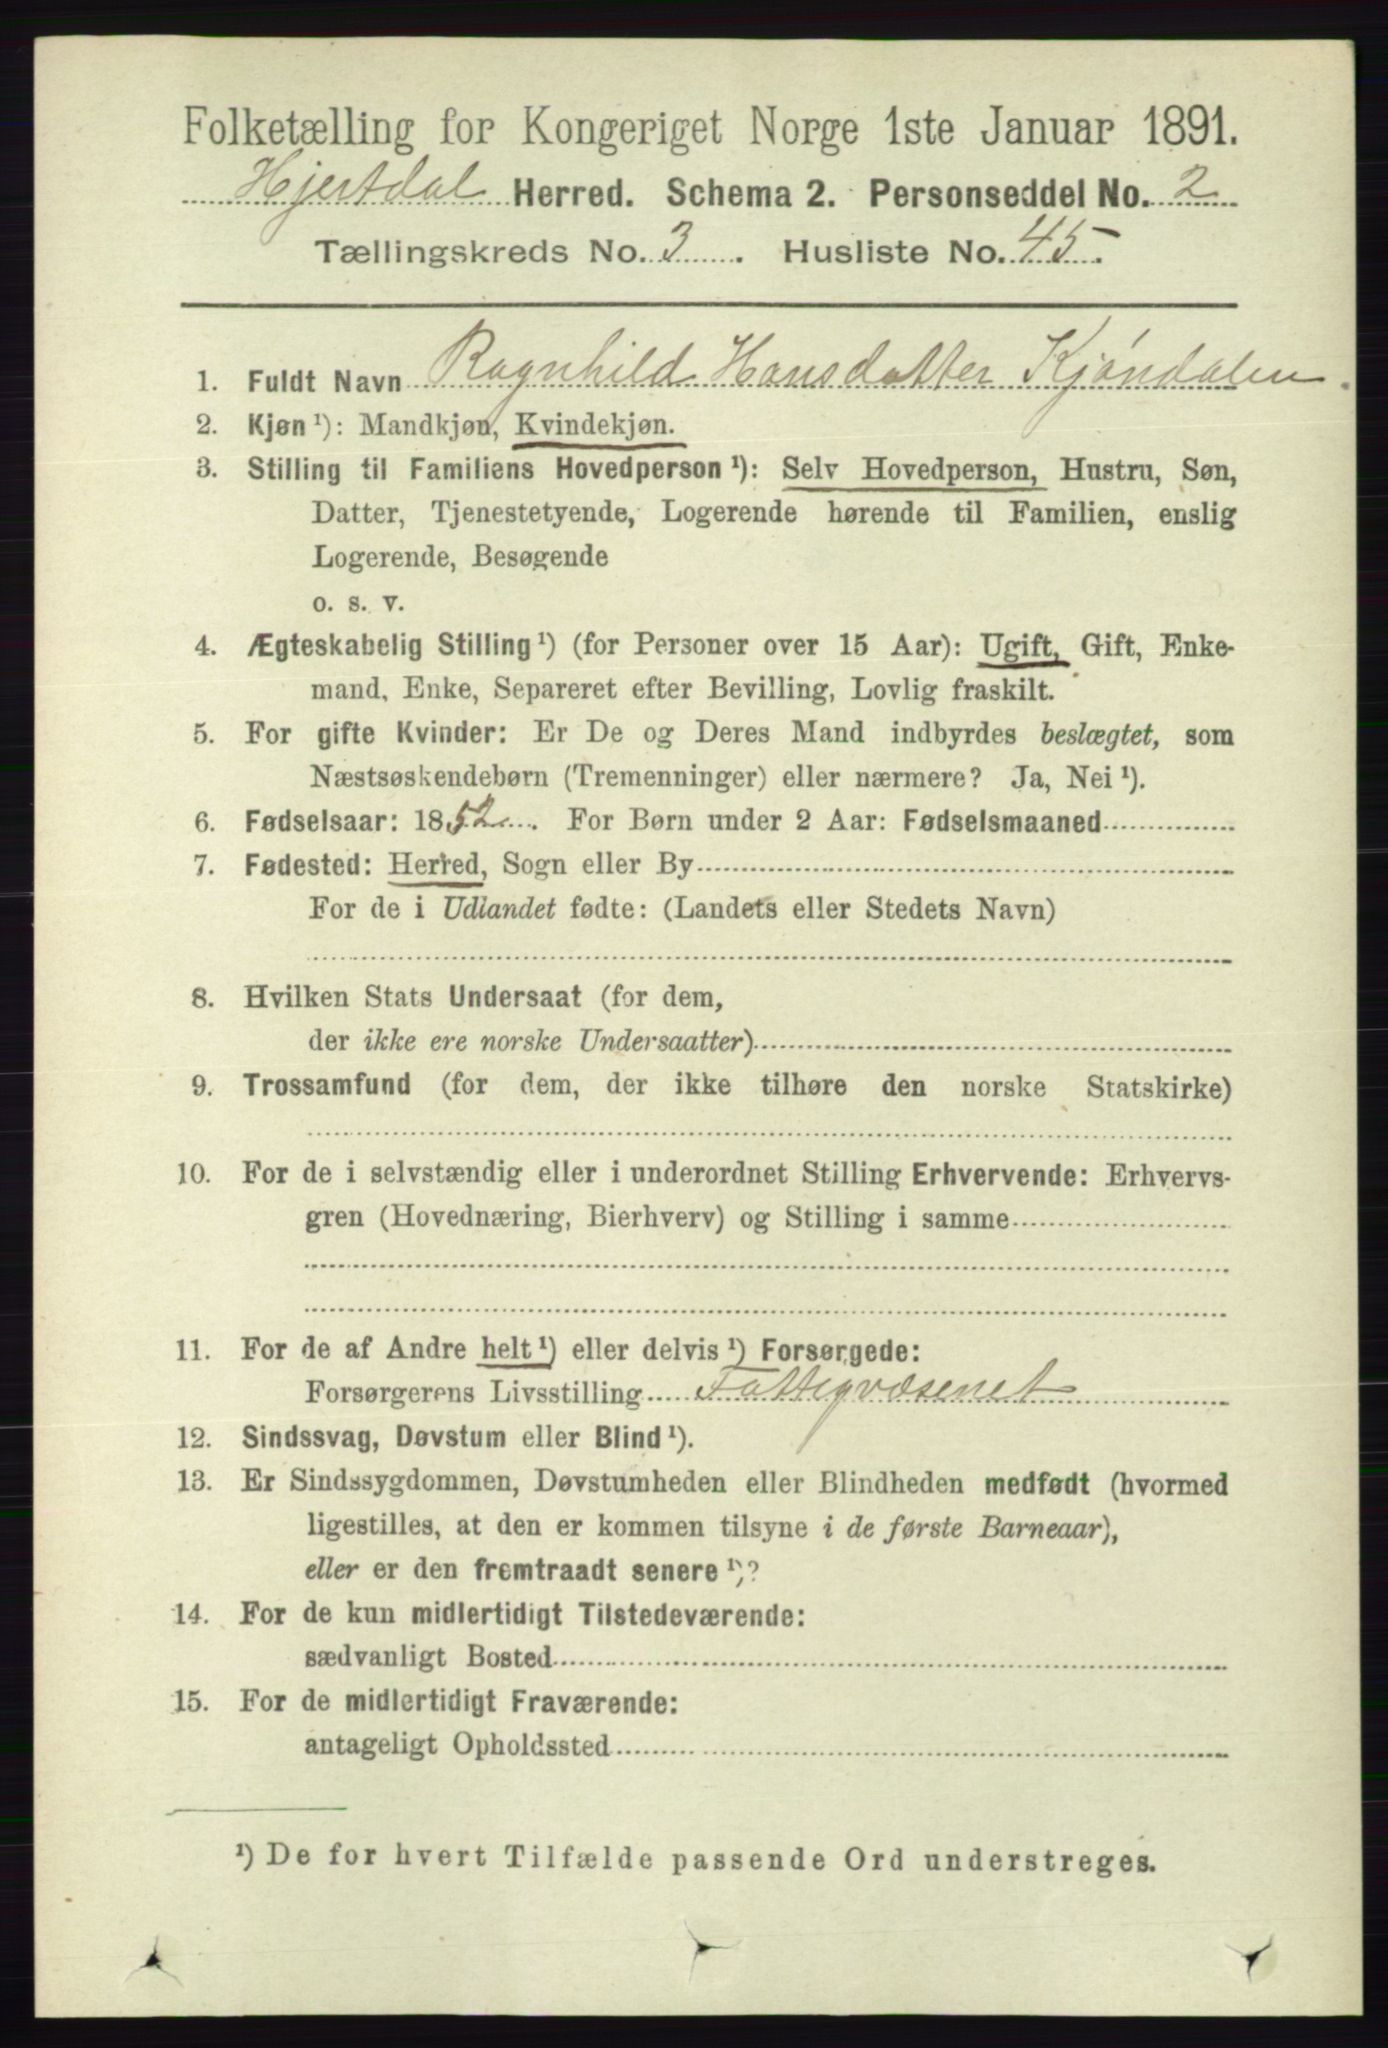 Folketælling for Kongeriget Norge 1ste Januar 1891.
Hjertdal Herred. Schema 2. Personseddel No. 2
Tællingskreds No. 3. Husliste No. 45.
1. Fuldt Navn Ragnhild Hansdatter Kjóndalen
2. Kjøn ¹): Mandkjøn, Kvindekjøn.
3. Stilling til Familiens Hovedperson ¹): Selv Hovedperson, Hustru, Søn,
Datter, Tjenestetyende, Logerende hørende til Familien, enslig
Logerende, Besøgende
o. s. v.
4. Ægteskabelig Stilling ¹) (for Personer over 15 Aar): Ugift, Gift, Enke-
mand, Enke, Separeret efter Bevilling, Lovlig fraskilt.
5. For gifte Kvinder: Er De og Deres Mand indbyrdes beslægtet, som
Næstsøskendebørn (Tremenninger) eller nærmere? Ja, Nei ¹).
6. Fødselsaar: 1852. For Børn under 2 Aar: Fødselsmaaned
7. Fødested: Herred, Sogn eller By
For de i Udlandet fødte: (Landets eller Stedets Navn)
8. Hvilken Stats Undersaat (for dem,
der ikke ere norske Undersaatter)
9. Trossamfund (for dem, der ikke tilhøre den norske Statskirke)
10. For de i selvstændig eller i underordnet Stilling Erhvervende: Erhvervs-
gren (Hovednæring, Bierhverv) og Stilling i samme
11. For de af Andre helt ¹) eller delvis ¹) Forsørgede:
Forsørgerens Livsstilling Fattigvæsenet
12. Sindssvag, Døvstum eller Blind ¹).
13. Er Sindssygdommen, Døvstumheden eller Blindheden medfødt (hvormed
ligestilles, at den er kommen tilsyne i de første Barneaar),
eller er den fremtraadt senere ¹)?
14. For de kun midlertidigt Tilstedeværende:
sædvanligt Bosted
15. For de midlertidigt Fraværende:
antageligt Opholdssted
¹) De for hvert Tilfælde passende Ord understreges.